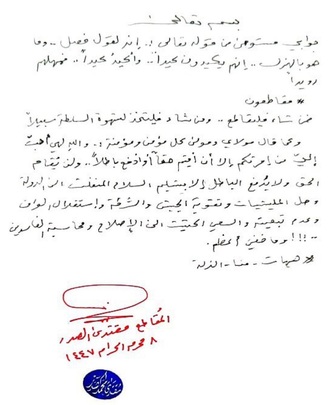 بسمه تعالى
جوابي مستوحى من قوله تعالى: .. إنه لقول فصل .. وما
هو بالهزل .. إنهم يكيدون كيداً .. وأكيد كيداً .. فمهلهم
رويداً
* مقاطعون
فمن شاء فليقاطع .. ومن شاء فليتخذ لشهوة السلطة سبيلاً
وكما قال مولاي ومولى كل مؤمن ومؤمنة: .. والله لهي أحب
إليّ من إمرتكم إلا أن أقيم حقاً أو أدفع باطلاً .. ولن يقام
الحق ولا يدفع الباطل إلا بتسليم السلاح المنفلت الى الدولة
وحل المليشيات وتقوية الجيش والشرطة وإستقلال العراق
وعدم تبعيته والسعي الحثيث الى الإصلاح ومحاسبة الفاسدين
..!!! وما خفي أعظم.
* هيهات - منا - الذلة
المقاطع مقتدى الصدر
٨ محرم الحرام ١٤٤٧